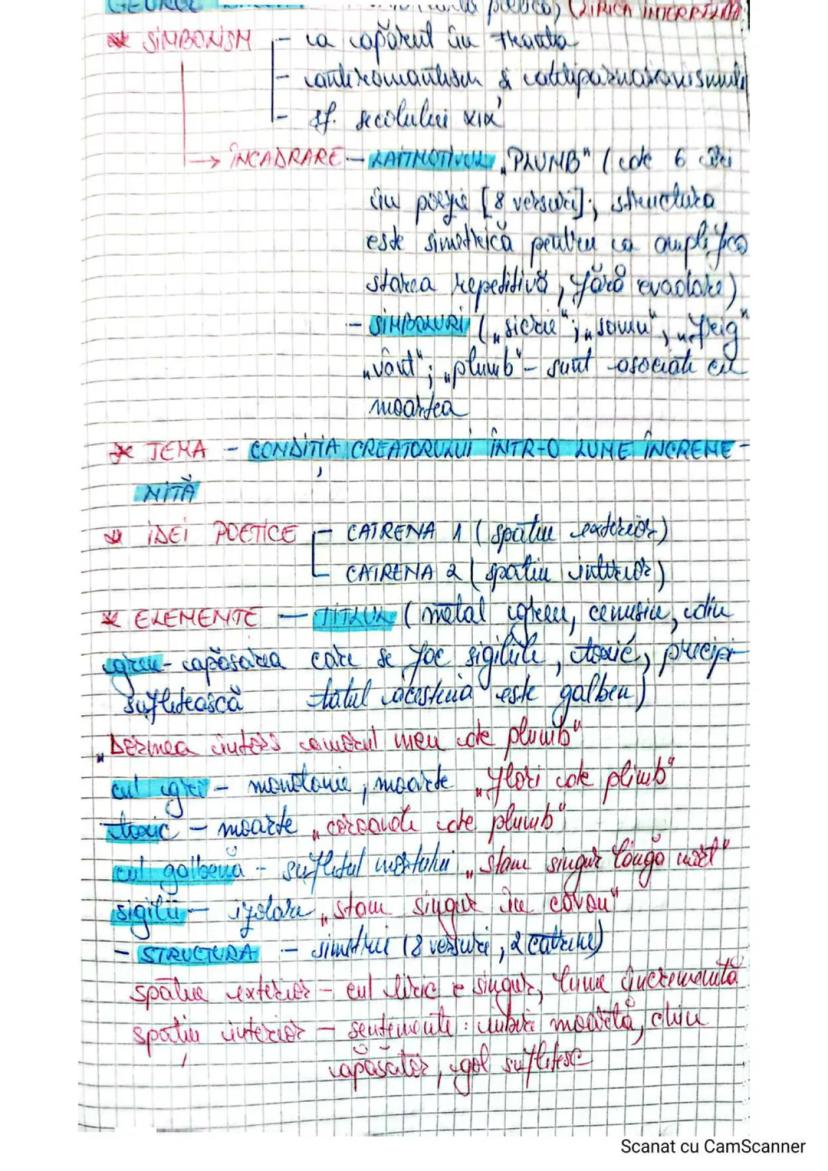 * SIMBOLISM – a apărut în Franța
– antiromantism & antiparnasianismului
– sf. secolului XIX
→ ÎNCADRARE – LAITMOTIVUL „PLUMB" (de 6 ori
în poezie [8 versuri]; structura
este simetrică pentru a amplifica
starea repetitivă, fără evadare)
– SIMBOLURI („sicrie"; „somn", „frig"
„vânt"; „plumb" – sunt asociate cu
moartea
* TEMA – CONDIȚIA CREATORULUI ÎNTR-O LUME ÎNCREME-
NITĂ
* IDEI POETICE – CATRENA 1 (spațiu exterior)
– CATRENA 2 (spațiu interior)
* ELEMENTE – TITLUL (metal greu, cenusiu, din
greu – apăsarea care se fac sigiliile, toxic, precipi-
sufletească tatul acestuia este galben)
„Dormea întors amorul meu de plumb"
cul gri – monotonie, moarte „flori de plimb"
toxic – moarte „coroanele de plumb"
cul galbenă – sufletul mortului „stam singur lângă mort"
sigilii – izolare „stam singur în cavou"
– STRUCTURA – simetrii (8 versuri, 2 catrene)
spațiu exterior – eul liric e singur, lume încremenită
spațiu interior – sentimente: iubire moartă, chin
apăsător, gol sufletesc
Scanat cu CamScanner